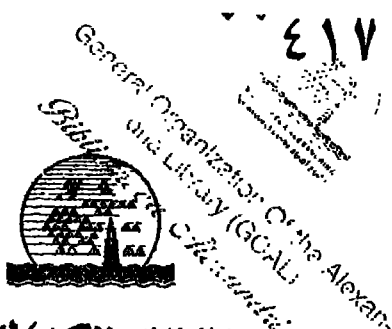 ٤١٧
General Organization Of the Alexan
and Library (GOAL)
Bibliotheca Alexandrina